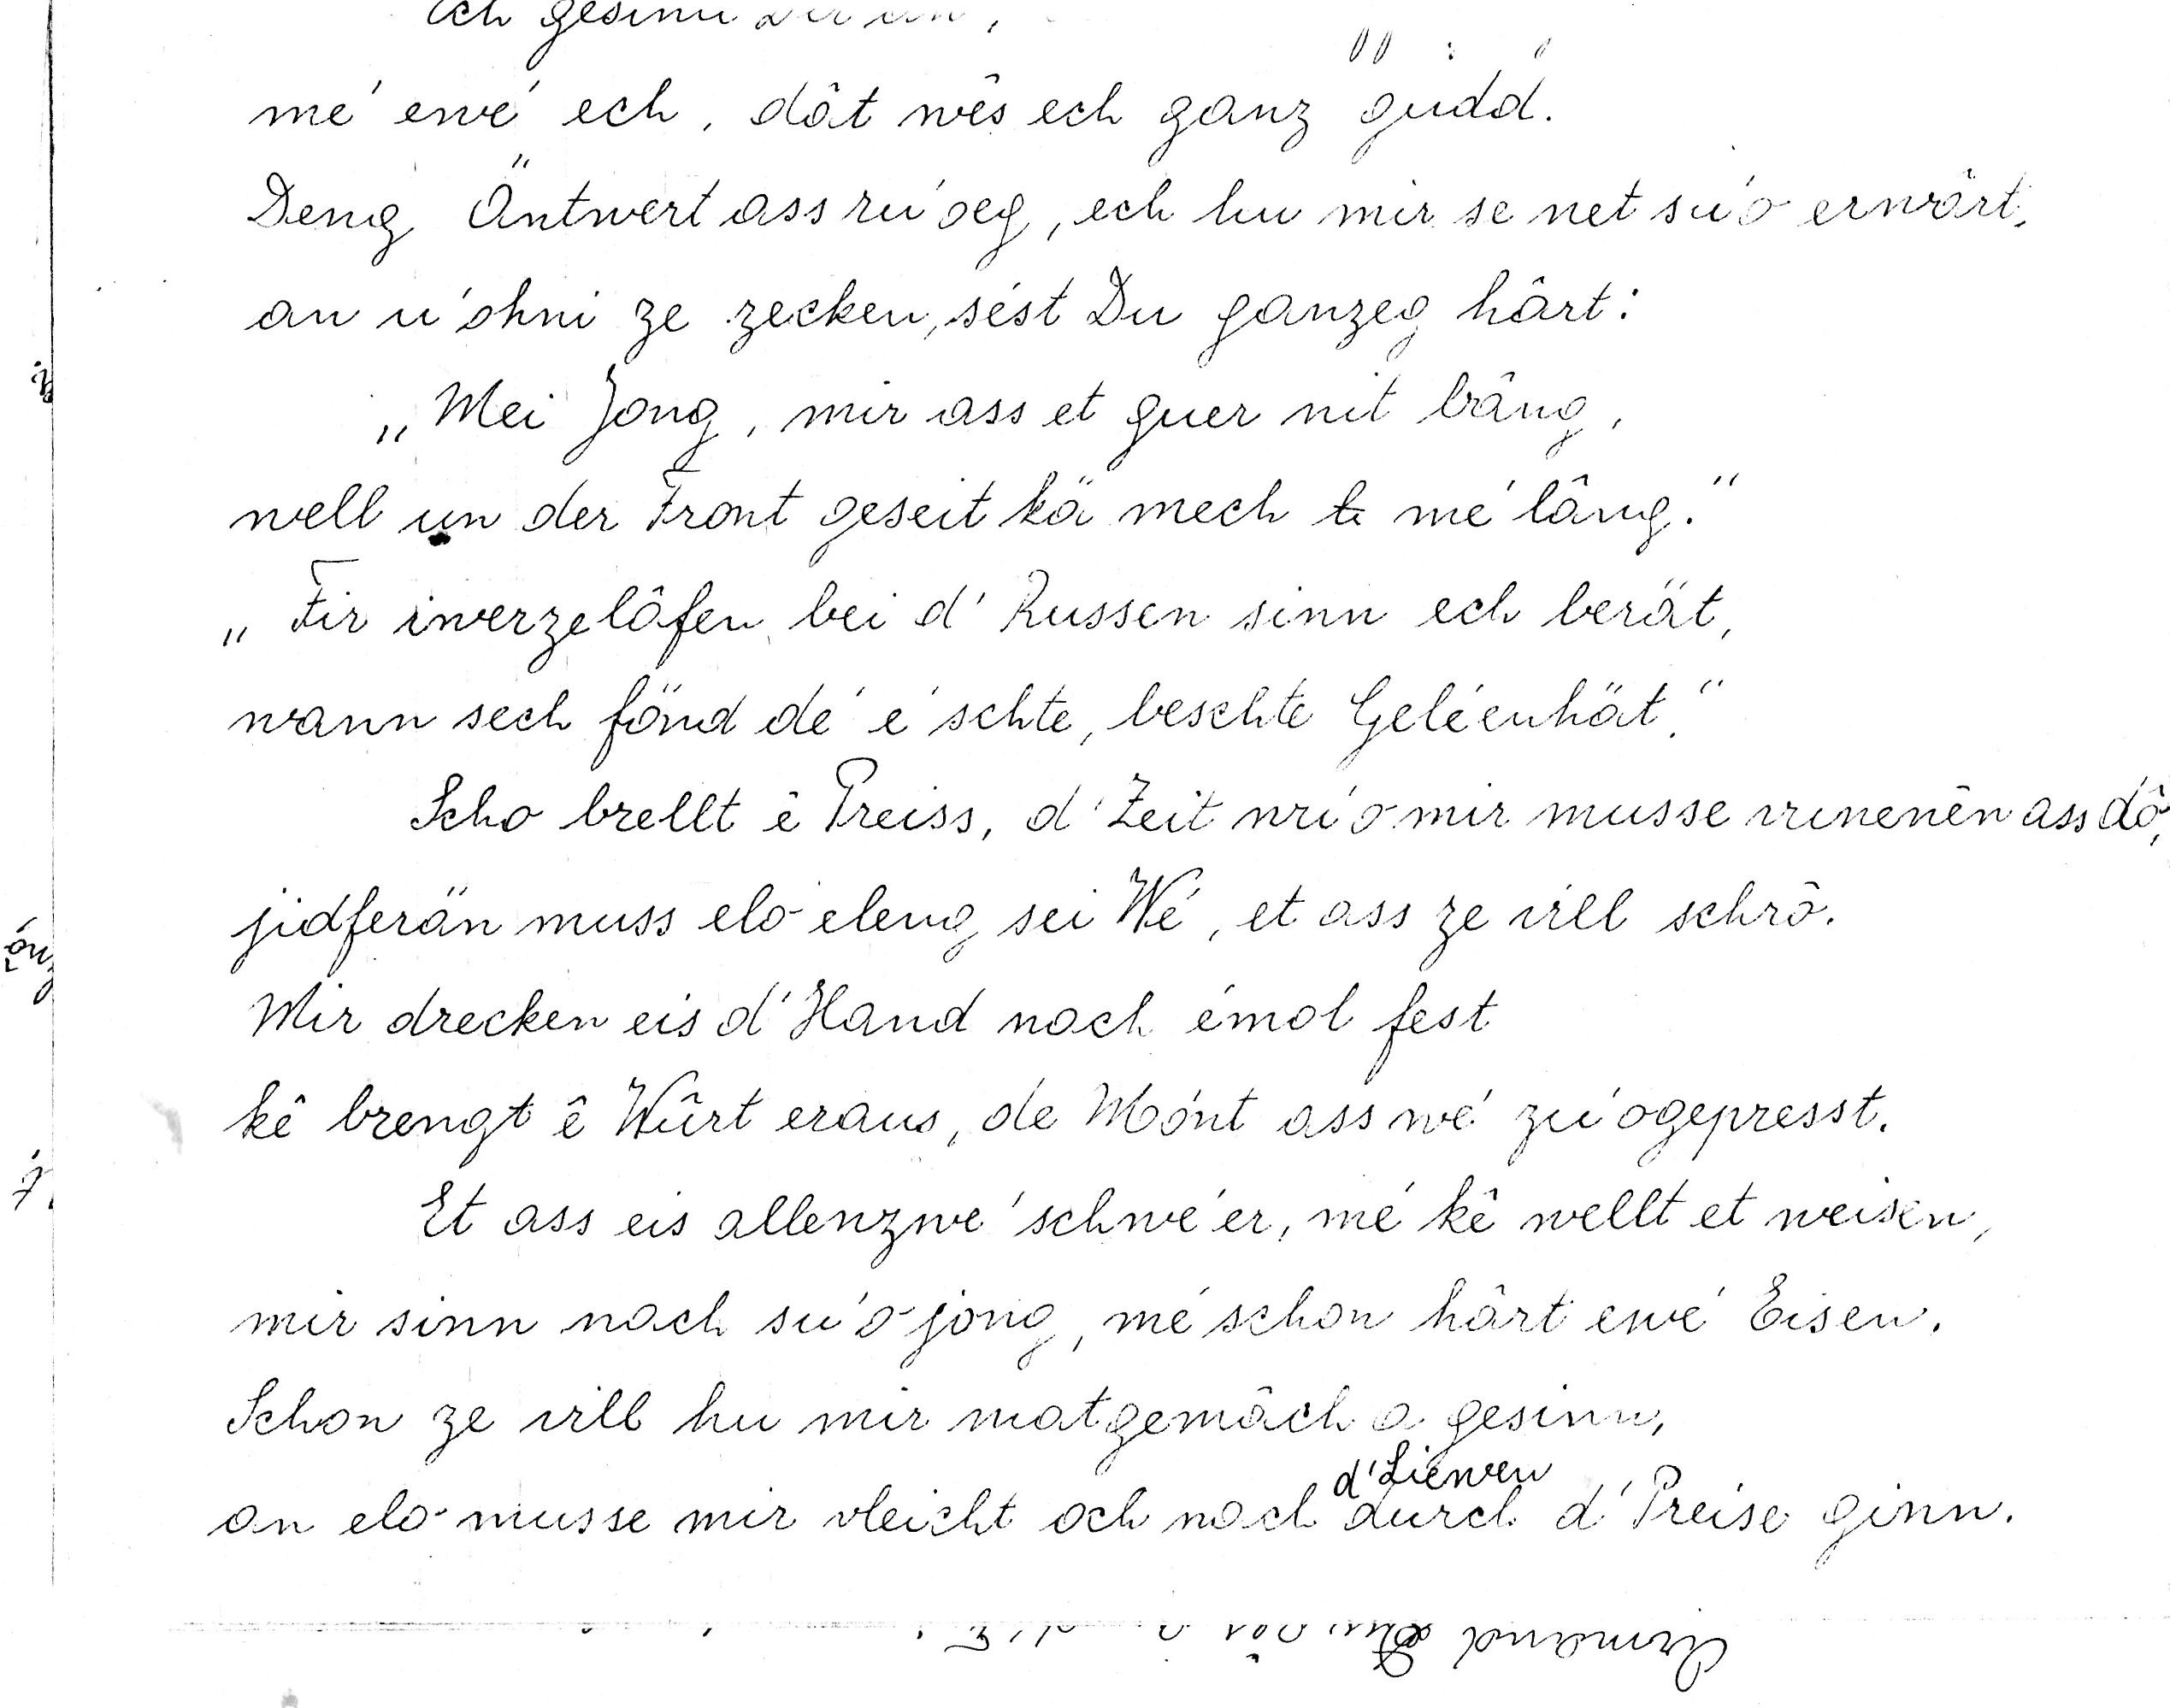 Ech gesinn
mé ewé ech, dât wês ech ganz gudd.
Deng Äntwert ass rú oeg, ech hu mir se net sú o erwârt,
an ú ohni ze zecken, sést Du ganzeg hârt:
„Mei Jong, mir ass et guer nit bâng,
well un der Front geseit kä mech mé lâng."
„Fir iwerzelâfen bei d' Russen sinn ech berät,
wann sech fönd dé é schte, beschte Geléenhät."
Scho brellt ê Preiss, d'Zeit wú o mir musse ass dô,
jidferän muss elo eleng sei Wé, et ass ze vill schrô.
Mir drecken eis d'Hand nach émol fest
kê brengt ê Wûrt eraus, de Mónt ass wé zú ogepresst.
Et ass eis allenzwé schwé er, mé kê wellt et weisen,
mir sinn nach sú o jong, mé schon hârt ewé Eisen.
Schon ze vill hu mir matgemâch a gesinn,
an elo musse mir vleicht och nach d'Liewen durch d'Preise ginn.
Armand